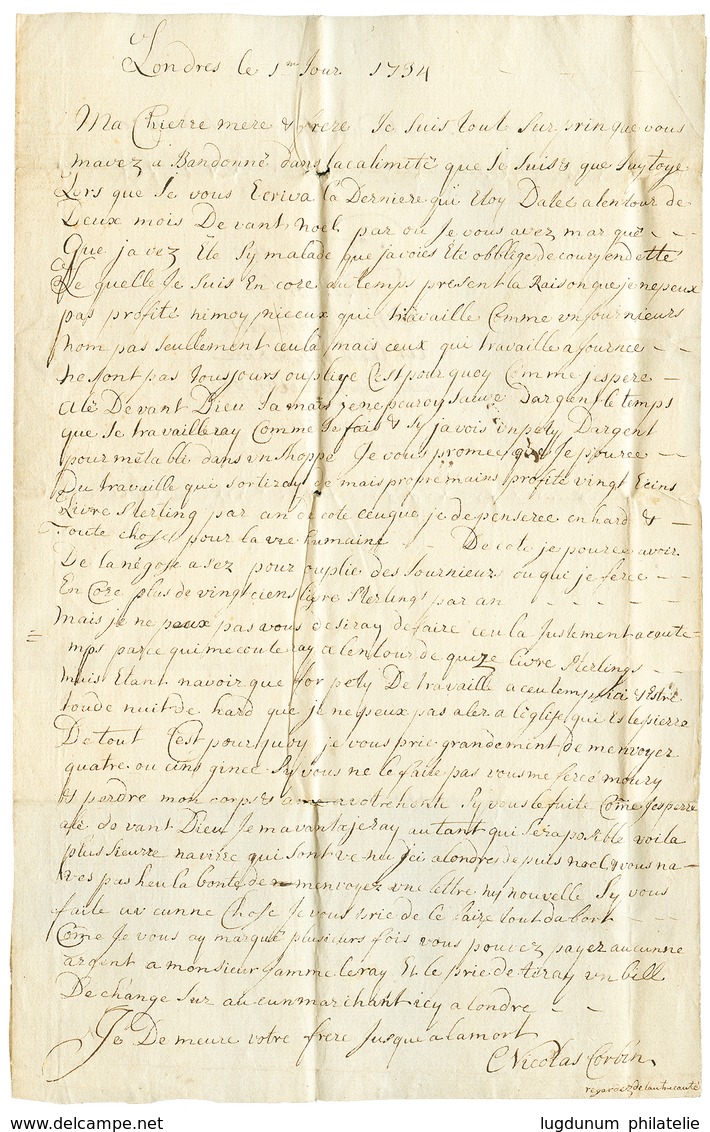 Londres le 1er Jour 1734
Ma Chierre mere & frere Je suis tout surprin que vous
mavez a Bandonné dans la calimité que Je suis & que Juytoye
Lors que Je vous Ecriva la Derniere qui Etoy Datéé alentour de
Deux mois De vant Noel par ou Je vous avez marqué
Que javez Ete sy malade que javoies Ete obblige de coury endette
De quelle Je suis En core au temps present la Raison que je ne peux
pas profité ni moy ni ceux qui travaille Comme un fournieurs
nom pas seullement ceula mais ceux qui travaille a journee
ne sont pas tousjours ouplige C'est pourquoy Comme jespere
alé Devant Dieu Jamais je ne peuroy sauve Dargent le temps
que Je travailleray Comme Je fais & sy javois un pety Dargent
pour métablé dans un shoppe Je vous promes que Je pouree
Du travaille qui sortiray de mais propre mains profité vingt & cins
Livre Sterling par an de coté ceuque je depenseree en hard &
Toute chose pour la vie humaine De cote je pouree avoir
De la négose asez pour ouplie des Journieurs ou qui je feree
En Core plus de vingt ciens livre Sterlings par an
mais je ne peux pas vous desiray de faire ceula Justement a ceute
mps parce qui me couteray a lentour de quize livre Sterlings
mais Etant navoir que for pety De travaille a ceu temps ici & Estre
toude nuit de hard que je ne peux pas aler a l'Eglise qui Es le pierre
De tout C'est pourquoy je vous prie grandement de menvoyez
quatre ou cins ginee Sy vous ne le faite pas vous me feree moury
& perdre mon corps & ame a votre henu Sy vous le faite Come Jesperre
alé de vant Dieu Je mavantajeray autant qui sera posible voila
plussieurre navirre qui sont venu Ici a Londres depuis noel & vous na-
ves pas heu la bonte de menvoyez une lettre ny nouvelle Sy vous
faite au cunne Chose Je vous prie de le faire tout dabort
Come Je vous ay marqué plusieurs fois vous pouvez payez aucunne
argent a monsieur gamme leray Et le prie de tiray un bill
De change sur au cun marchant icy a londre
Je De meure votre frere Jusque a la mort
Nicolas Corbin
regardez de lautre cauté
lugdunum philatelie
www.delcampe.net